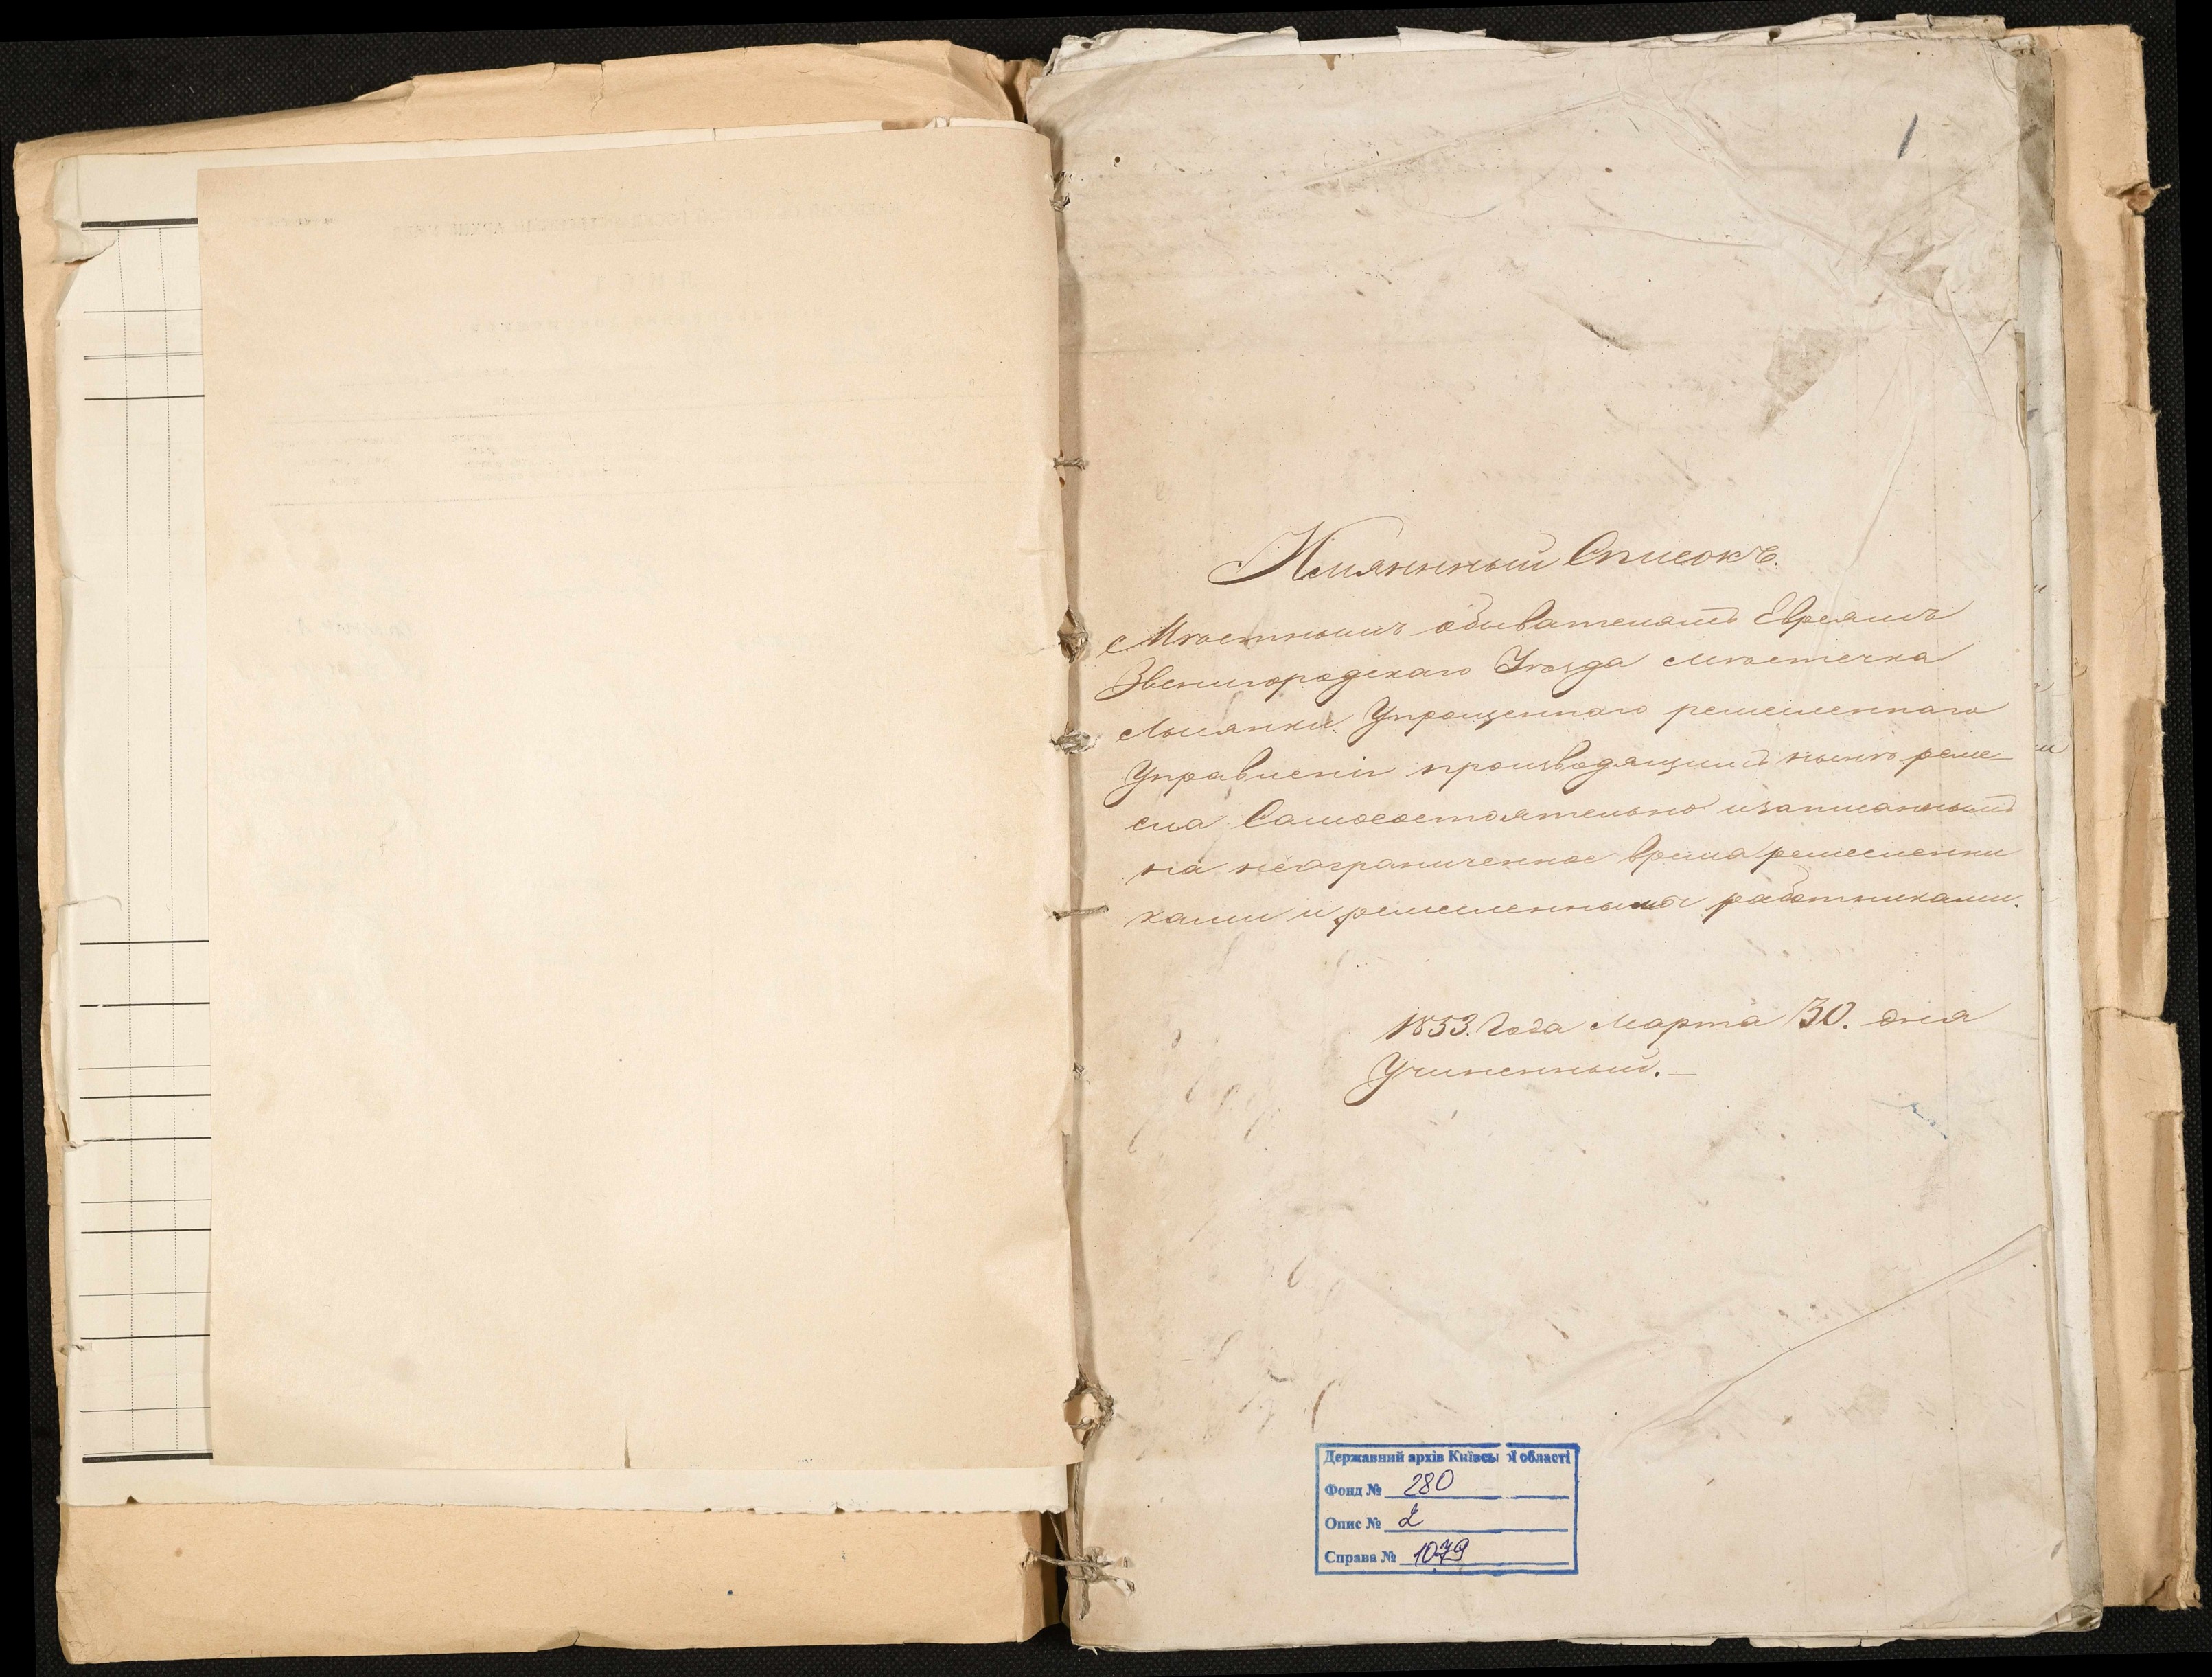 1
Имянный Списокъ.
Мѣстнымъ обывателямъ Евреямъ
Звенигородскаго Уѣзда мѣстечка
Лысянки Упрощеннаго ремесленнаго
Управленія производящимъ нынѣ реме-
сла Самосостоятельно изаписаннымъ
на неограниченное время ремесленни
ками и ремесленными работниками.
1853. Года Марта 30. дня
Учиненный.—
Державний архів Київської області
Фонд № 280
Опис № 2
Справа № 1079